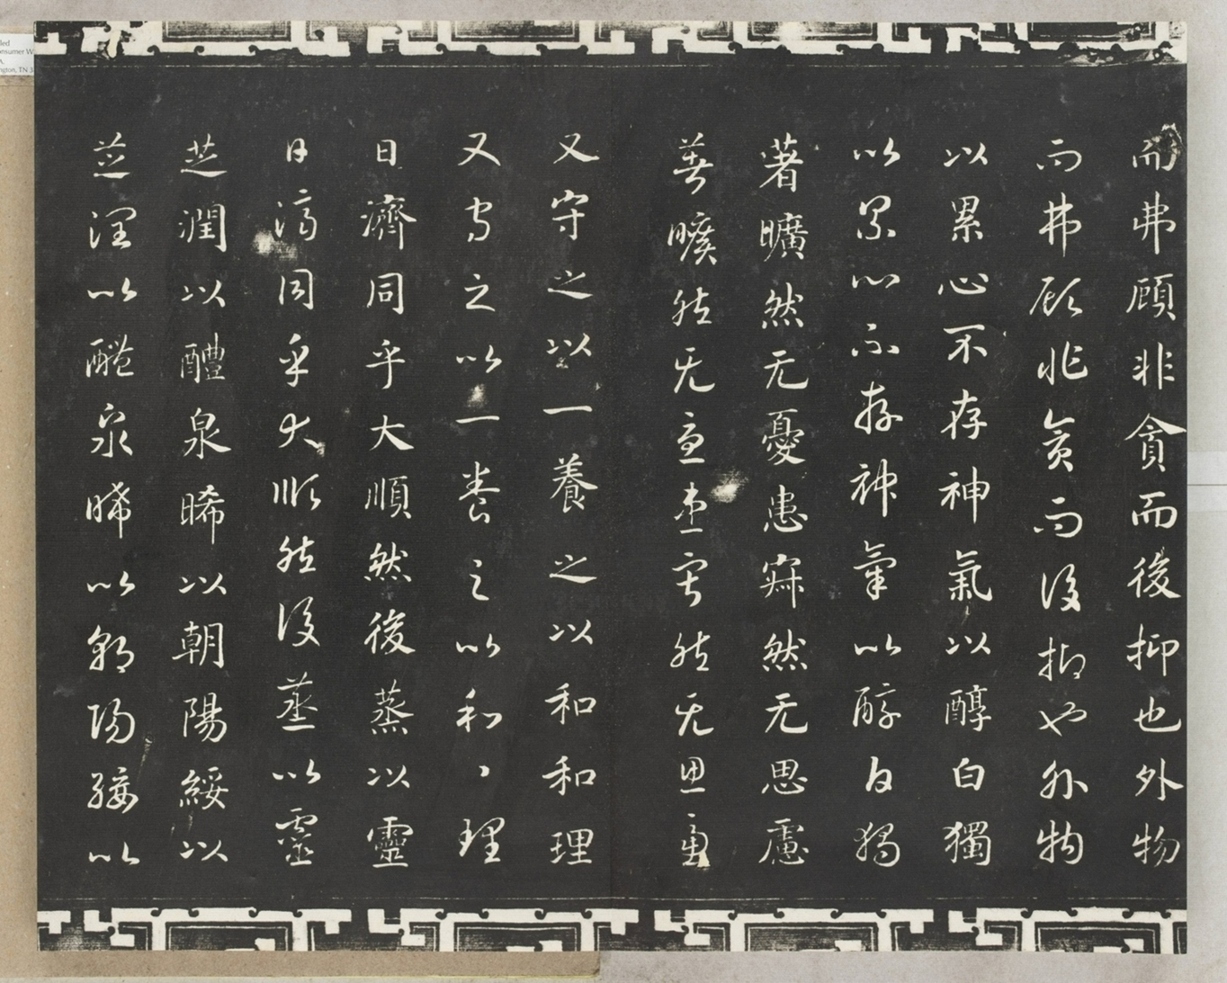 而弗顧非貪而後抑也外物
而弗顧非貪而後抑也外物
以累心不存神氣以醇白獨
以累心不存神氣以醇白獨
著曠然无憂患寂然无思慮
著曠然无憂患寂然无思慮
又守之以一養之以和和理
又守之以一養之以和、理
日濟同乎大順然後蒸以靈
日濟同乎大順然後蒸以靈
芝潤以醴泉晞以朝陽綏以
芝潤以醴泉晞以朝陽綏以